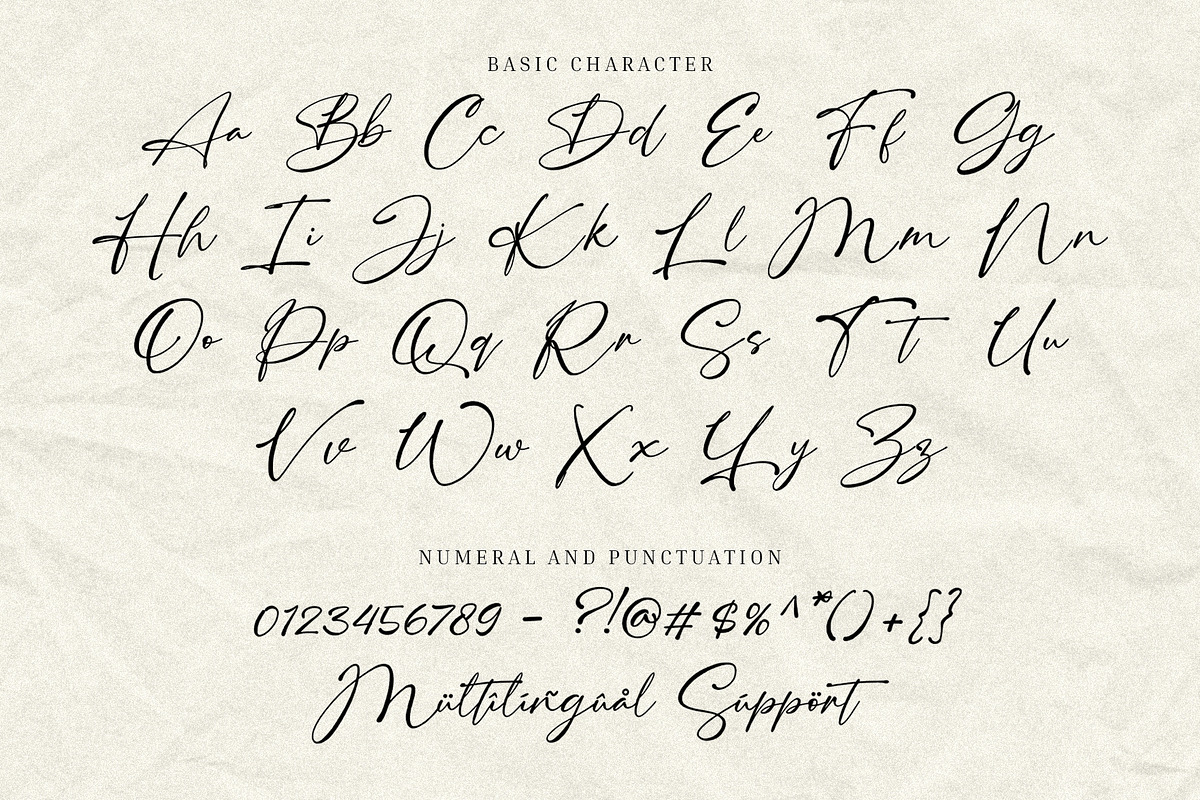 BASIC CHARACTER
Aa Bb Cc Dd Ee Ff Gg
Hh Ii Jj Kk Ll Mm Nn
Oo Pp Qq Rr Ss Tt Uu
Vv Ww Xx Yy Zz
NUMERAL AND PUNCTUATION
0123456789 - ?!@#$%^*()+{}
Mültîlíñgûål Súppört